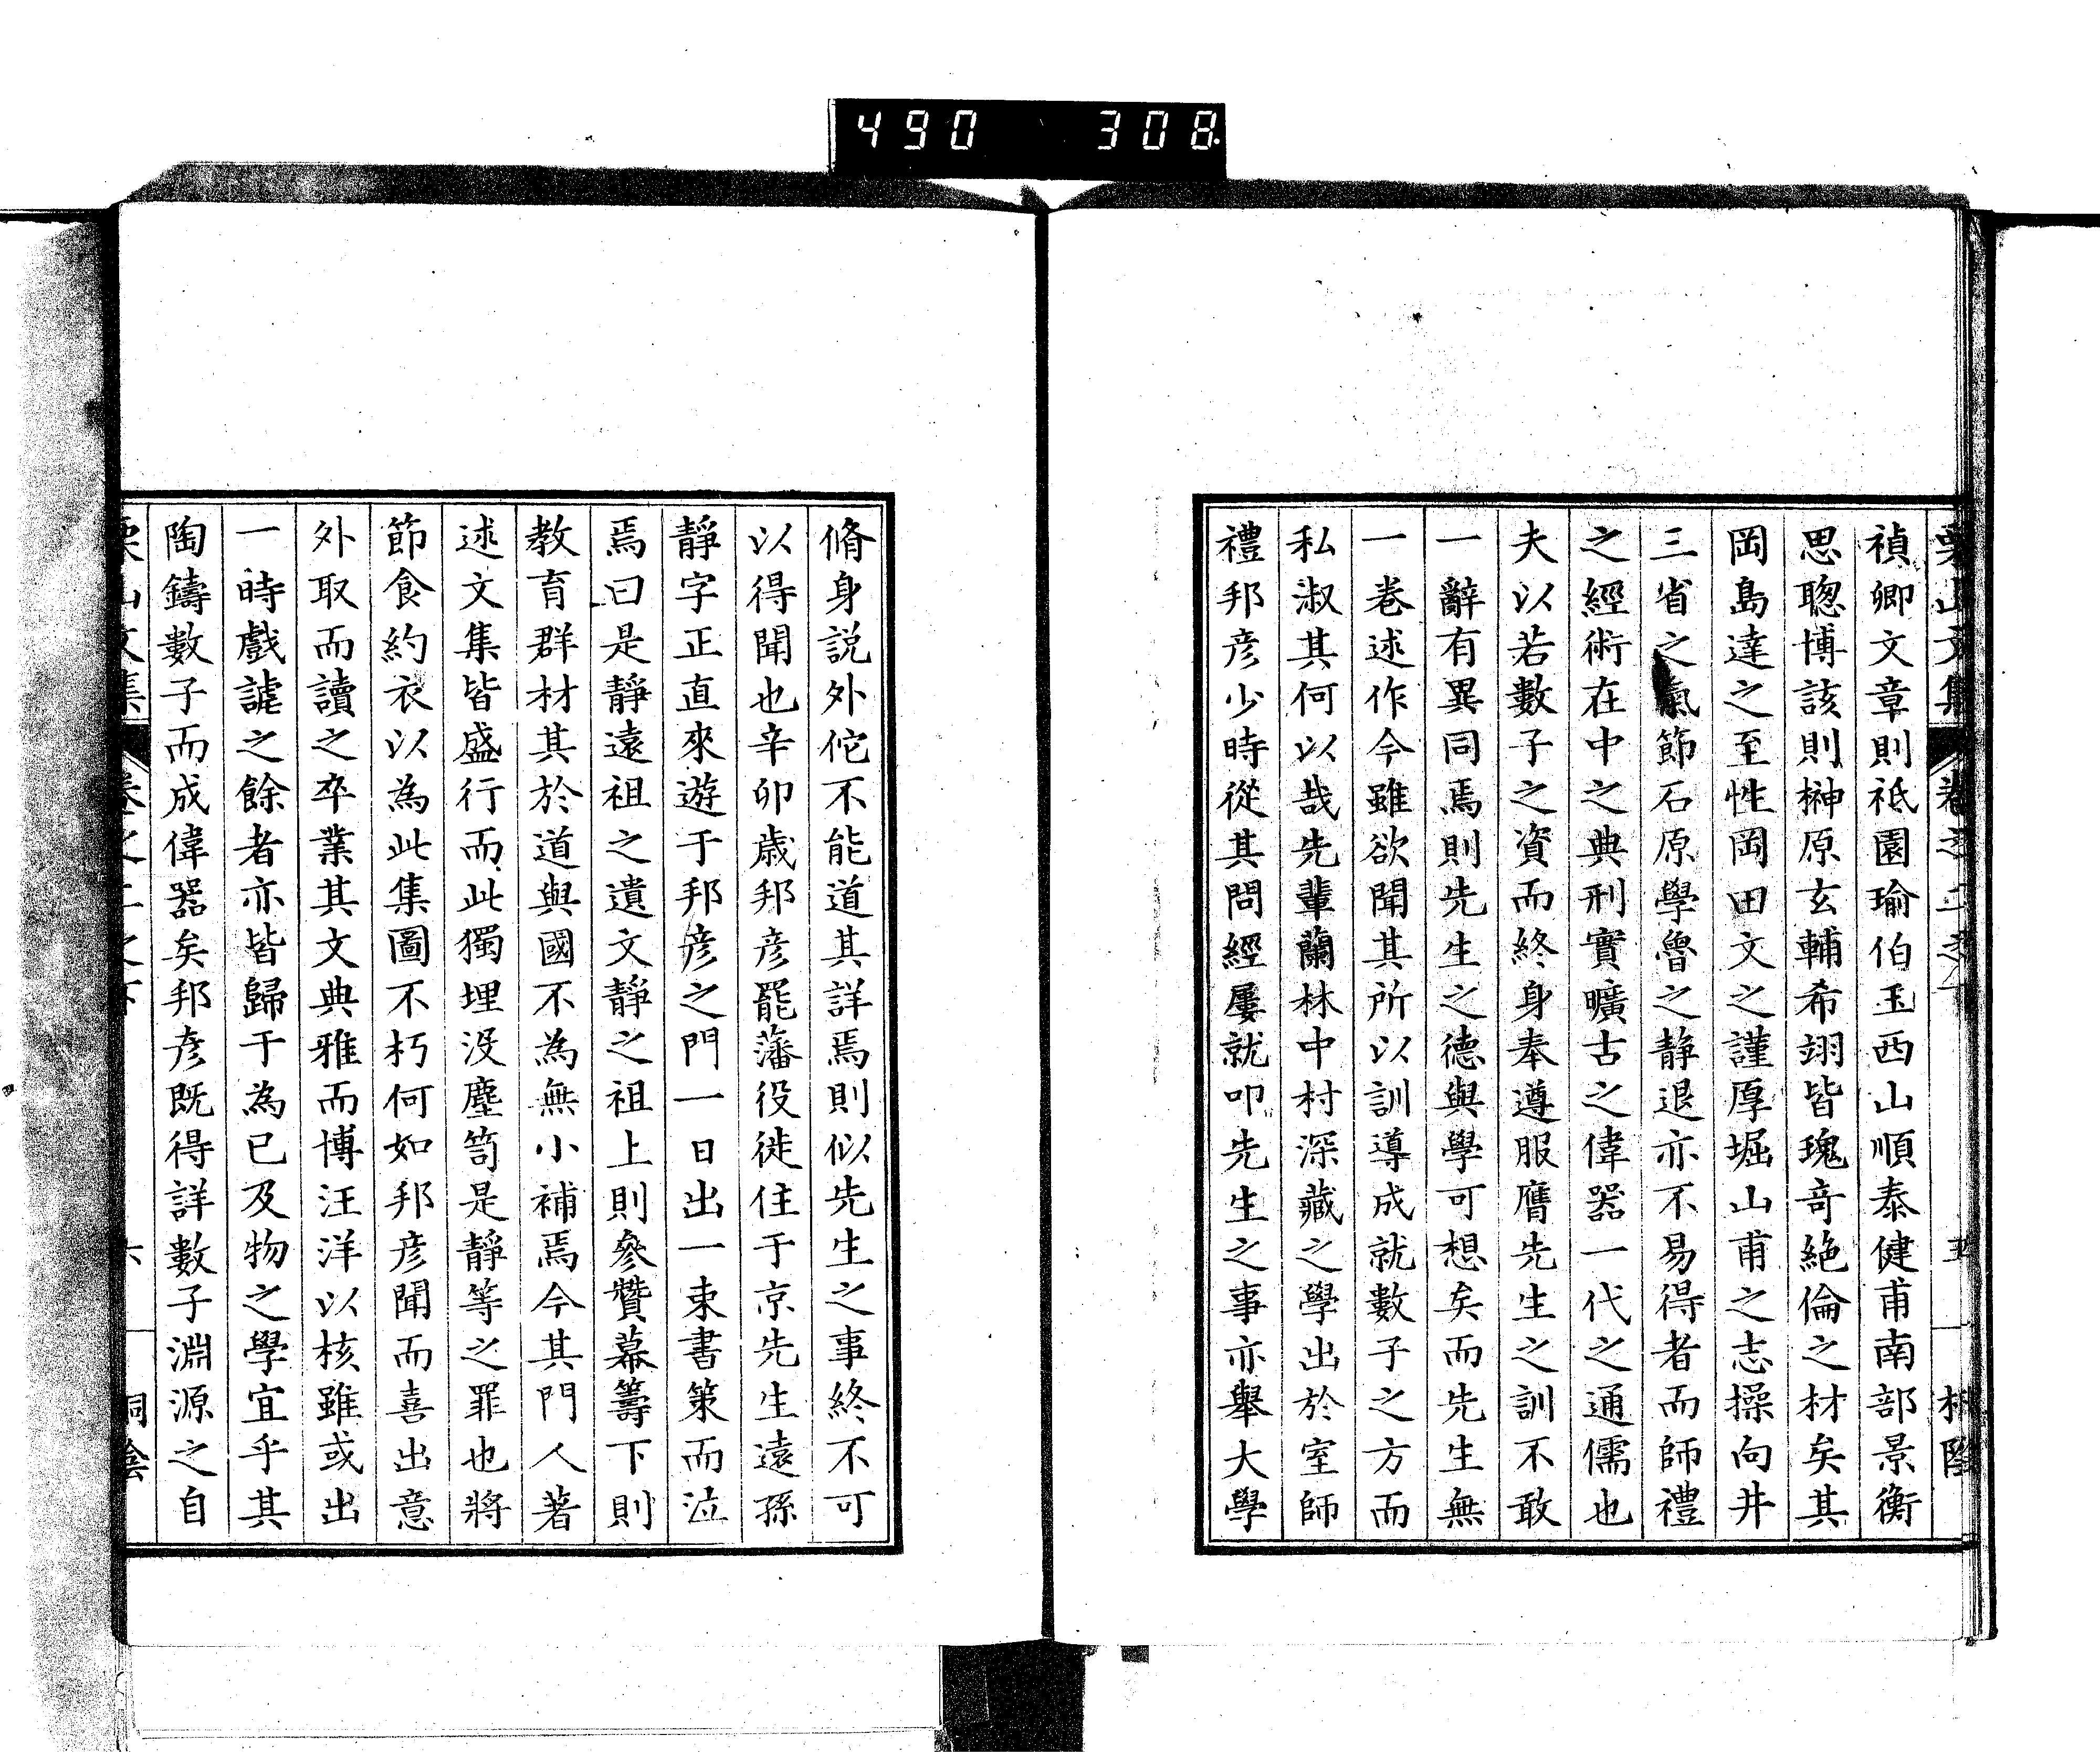 490 308
禎卿文章則祗園瑜伯玉西山順泰健甫南部景衡
思聰博該則榊原玄輔希翊皆瑰奇絶倫之材矣其
岡島達之至性岡田文之謹厚堀山甫之志操向井
三省之氣節石原學魯之静退亦不易得者而師禮
之經術在中之典刑實曠古之偉器一代之通儒也
夫以若數子之資而終身奉遵服膺先生之訓不敢
一辭有異同焉則先生之德與學可想矣而先生無
一卷述作今雖欲聞其所以訓導成就數子之方而
私淑其何以哉先輩蘭林中村深藏之學出於室師
禮邦彦少時從其問經屢就叩先生之事亦舉大學
脩身説外佗不能道其詳焉則似先生之事終不可
以得聞也辛卯歳邦彦罷藩役徙住于京先生遠孫
靜字正直來遊于邦彦之門一日出一束書策而泣
焉曰是靜遠祖之遺文靜之祖上則參贊幕籌下則
教育群材其於道與國不為無小補焉今其門人著
述文集皆盛行而此獨埋没塵笥是靜等之罪也將
節食約衣以為此集圖不朽何如邦彦聞而喜出意
外取而讀之卒業其文典雅而博汪洋以核雖或出
一時戲謔之餘者亦皆歸于為已及物之學宜乎其
陶鑄數子而成偉器矣邦彦既得詳數子淵源之自
栗山文集 卷之二之下 六 桐陰